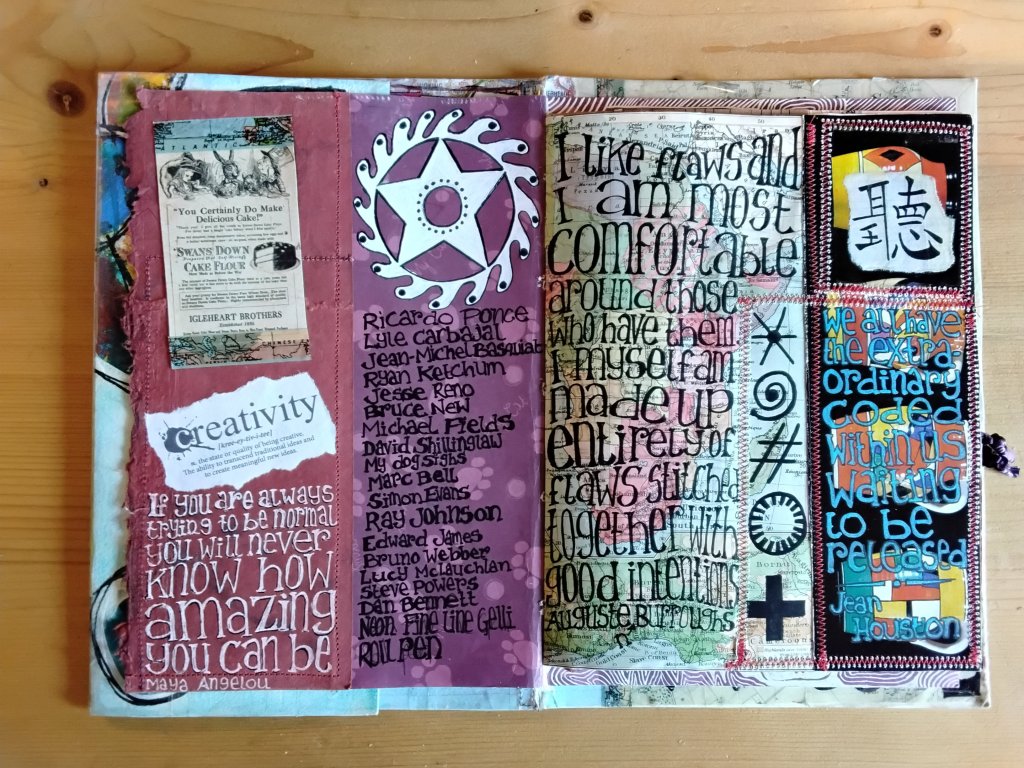 ATLANTIC
"You Certainly Do Make
Delicious Cake!"
SWANS DOWN
CAKE FLOUR
IGLEHEART BROTHERS
Established 1856
CHINESE
creativity
[kree-ey-tiv-i-tee]
n. the state or quality of being creative.
The ability to transcend traditional ideas and
to create meaningful new ideas.
If you are always
trying to be normal
you will never
know how
amazing
you can be
Maya Angelou
Ricardo Ponce
Lyle Carbajal
Jean-Michel Basquiat
Ryan Ketchum
Jesse Reno
Bruce New
Michael Fields
David Shillinglaw
My dog sighs
Marc Bell
Simon Evans
Ray Johnson
Edward James
Bruno Webber
Lucy McLauchlan
Steve Powers
Dan Bennett
Neon Fine Line Gelli
Roll pen
I like flaws and
I am most
comfortable
around those
who have them.
I myself am
made up
entirely of
flaws stitched
together with
good intentions
Auguste Burroughs
聽
we all have
the extra-
ordinary
coded
within us
waiting
to be
released
Jean
Houston